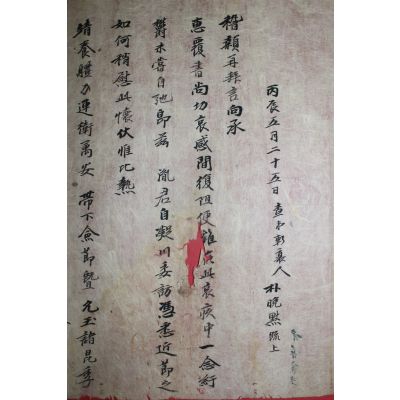 丙辰五月二十五日 査 人 朴晩黙疏上
稽顙再拜言向承
惠覆書尚切哀感間復阻便雖 此哀疚中一念紆
欝未嘗自弛即玆 胤君自凝川委訪憑悉近節之
如何稍慰此懷伏惟比熱
靖養軆力連衛萬安 帶下僉節曁 允玉諸昆季